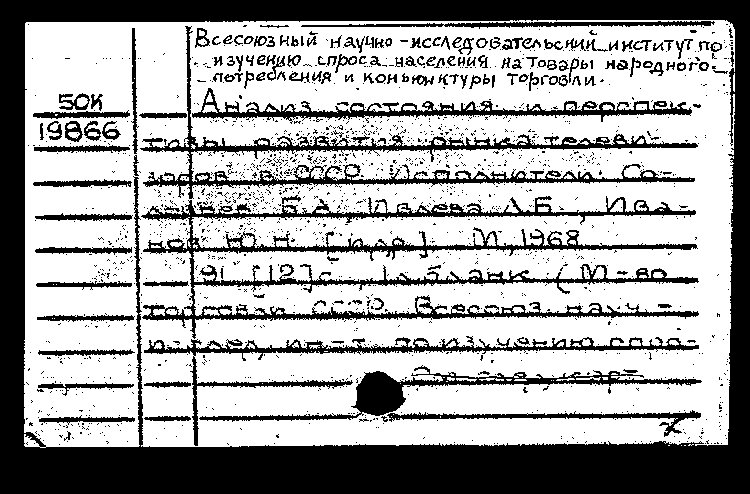 Всесоюзный научно-исследовательский институт по
изучению спроса населения на товары народного
потребления и конъюнктуры торговли.
50К
19866
Анализ состояния и перспек-
тивы развития рынка телеви-
зоров в СССР. Исполнители: Со-
Б.А., Ивлева Л.Б., Ива-
нов Ю.Н. [и др.]. М., 1968
91 [12] с., 1 л. бланк (М-во
торговли СССР. Всесоюз. науч.-
и-след. ин-т по изучению спро-
См. след. карт.